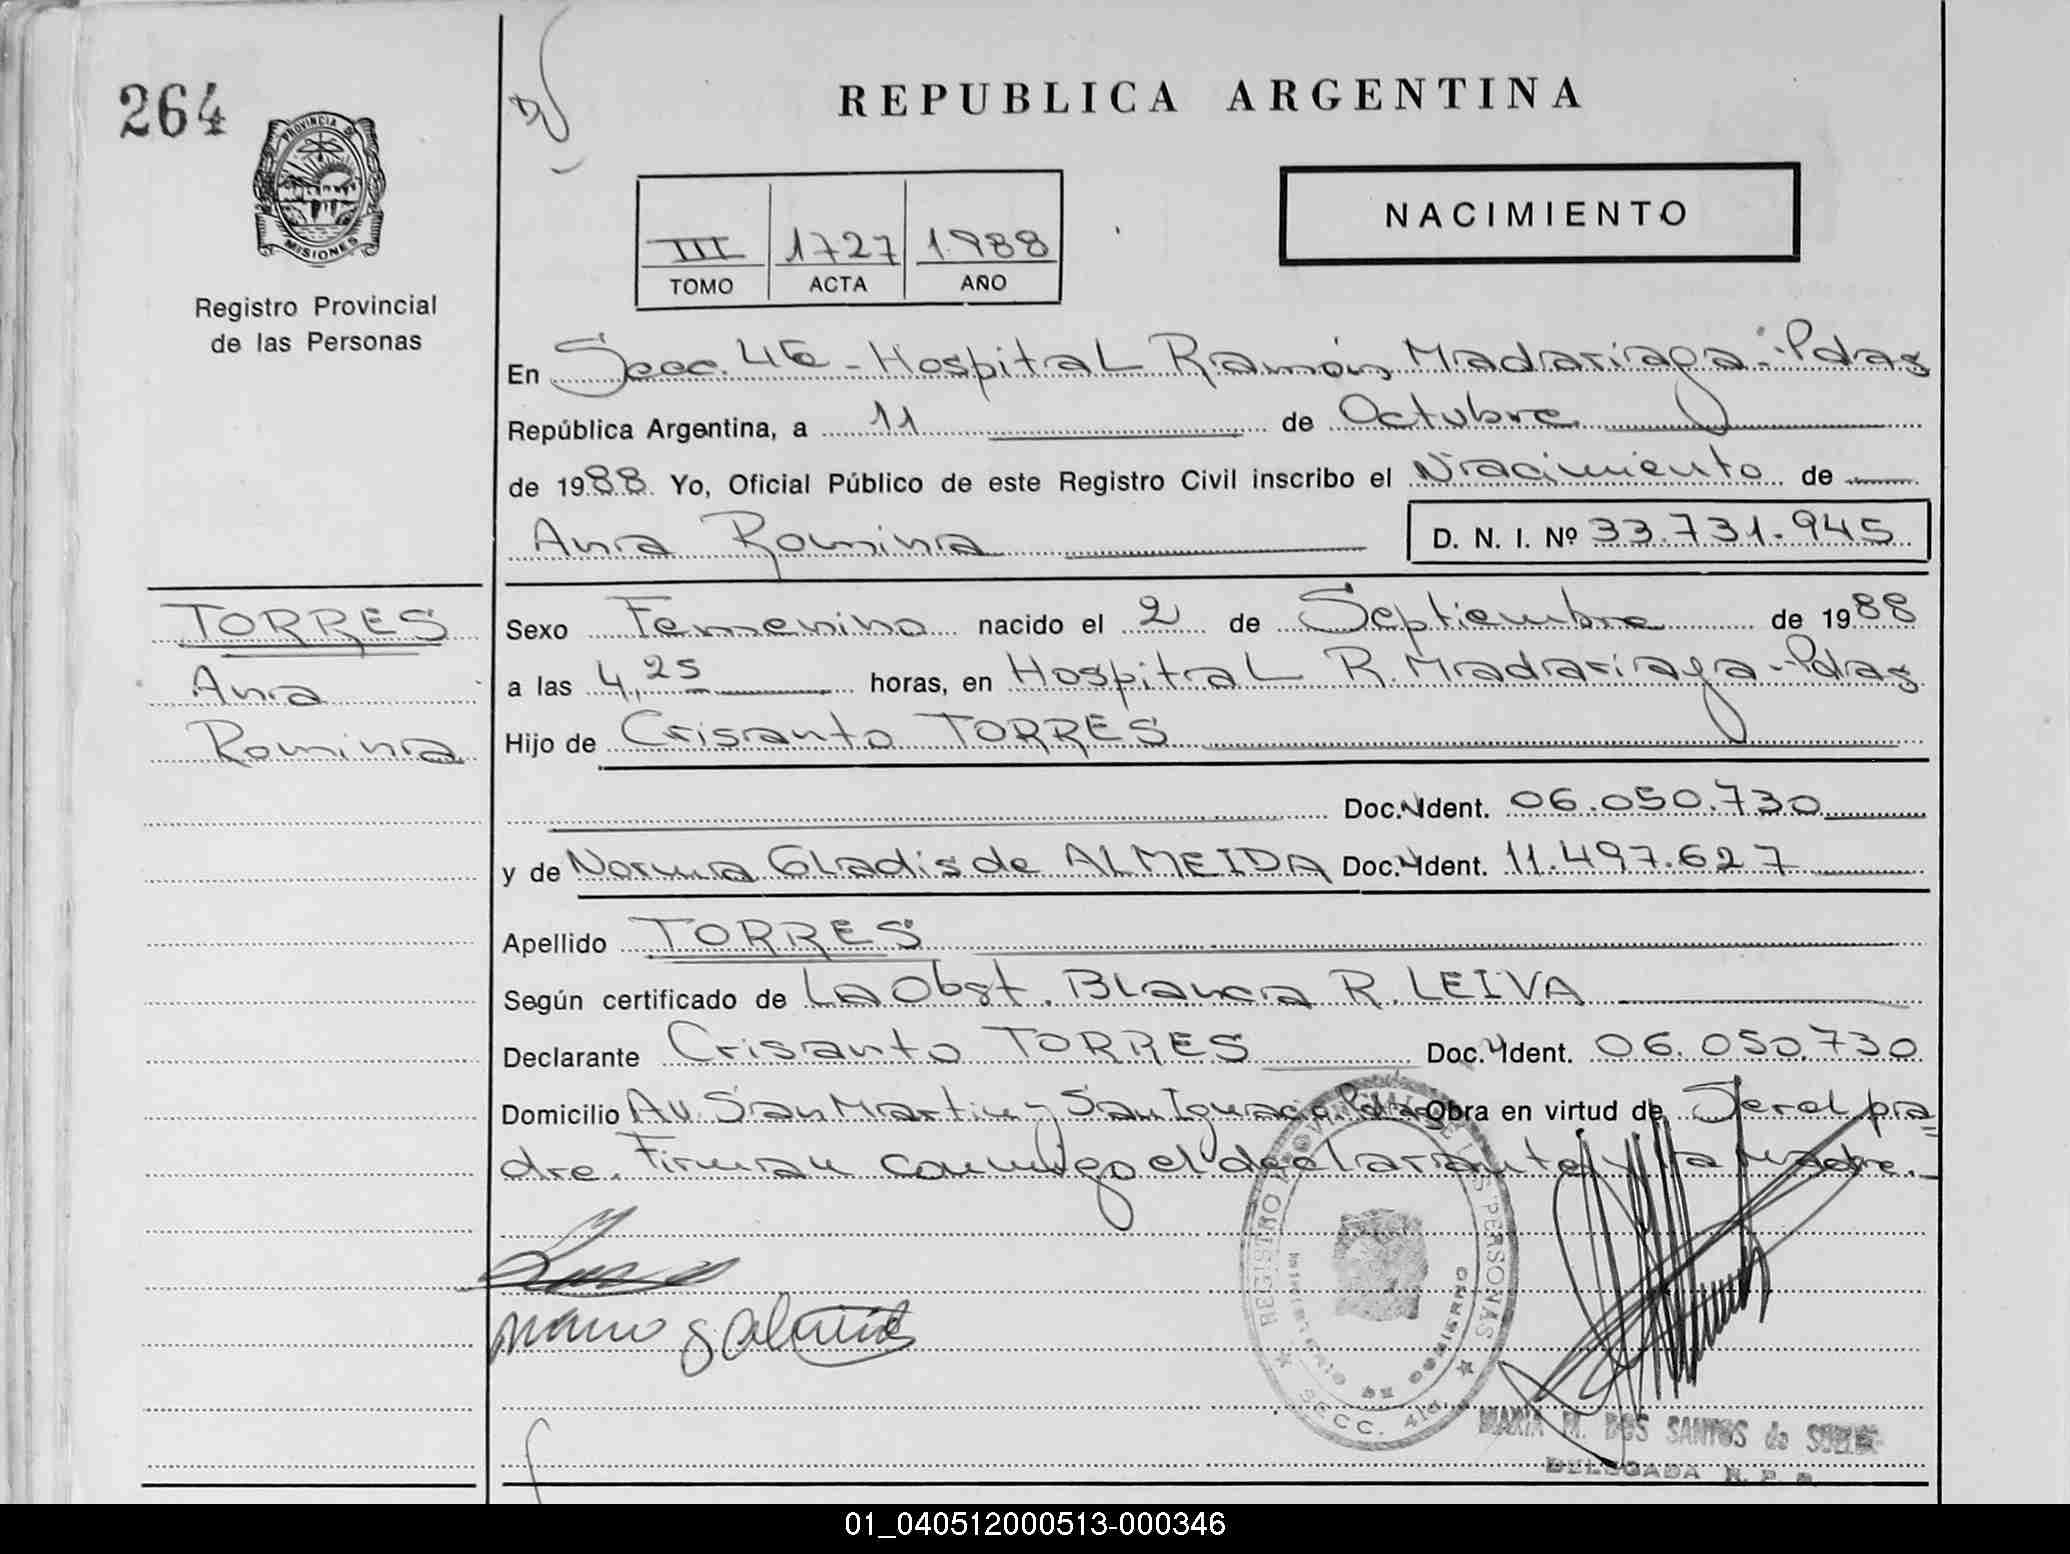 264
PROVINCIA DE
MISIONES
Registro Provincial
de las Personas
REPUBLICA ARGENTINA
III 1727 1988
TOMO ACTA AÑO
NACIMIENTO
En Secc. 4ta - Hospital Ramón Madariaga - Pdas
República Argentina, a 11 de Octubre
de 1988 Yo, Oficial Público de este Registro Civil inscribo el Nacimiento de
Ana Romina D. N. I. Nº 33.731.945
TORRES
Ana
Romina
Sexo Femenino nacido el 2 de Septiembre de 1988
a las 4,25 horas, en Hospital R. Madariaga - Pdas
Hijo de Crisanto TORRES
Doc. Ident. 06.050.730
y de Norma Gladis de ALMEIDA Doc. Ident. 11.497.627
Apellido TORRES
Según certificado de La Obst. Blanca R. LEIVA
Declarante Crisanto TORRES Doc. Ident. 06.050.730
Domicilio Av. San Martin y San Ignacio Pdas Obra en virtud de Ser el pa
dre. Firman conmigo el declarante y la Madre.
REGISTRO PROVINCIAL DE LAS PERSONAS
MINISTERIO DE GOBIERNO
SECC. 4ta.
MARIA M. DOS SANTOS de
DELEGADA R. P. P.
01_040512000513-000346